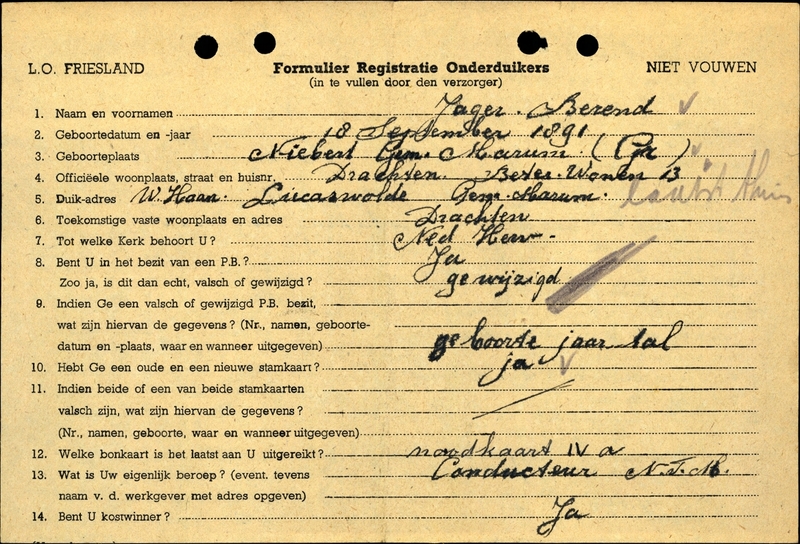 L.O. FRIESLAND Formulier Registratie Onderduikers NIET VOUWEN
(in te vullen door den verzorger)
1. Naam en voornamen Jager. Berend
2. Geboortedatum en -jaar 18 September 1891
3. Geboorteplaats Niebert Gem. Marum (Gr)
4. Officiëele woonplaats, straat en huisnr. Drachten. Beter-Wonen 13
5. Duik-adres W. Haan. Lucaswolde Gem. Marum.
6. Toekomstige vaste woonplaats en adres Drachten
7. Tot welke Kerk behoort U? Ned Herv.
8. Bent U in het bezit van een P.B.? Ja
Zoo ja, is dit dan echt, valsch of gewijzigd? gewijzigd
9. Indien Ge een valsch of gewijzigd P.B. bezit,
wat zijn hiervan de gegevens? (Nr., namen, geboorte-
datum en -plaats, waar en wanneer uitgegeven) geboorte jaar tal
10. Hebt Ge een oude en een nieuwe stamkaart? ja
11. Indien beide of een van beide stamkaarten
valsch zijn, wat zijn hiervan de gegevens?
(Nr., namen, geboorte, waar en wanneer uitgegeven)
12. Welke bonkaart is het laatst aan U uitgereikt? noodkaart IV a
13. Wat is Uw eigenlijk beroep? (event. tevens Conducteur N.T.M.
naam v. d. werkgever met adres opgeven)
14. Bent U kostwinner? Ja